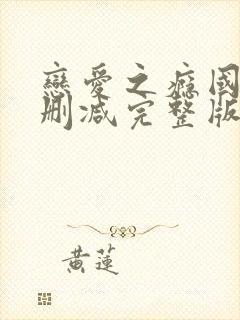 戀愛之癮國
刪減完整版
黃蓮